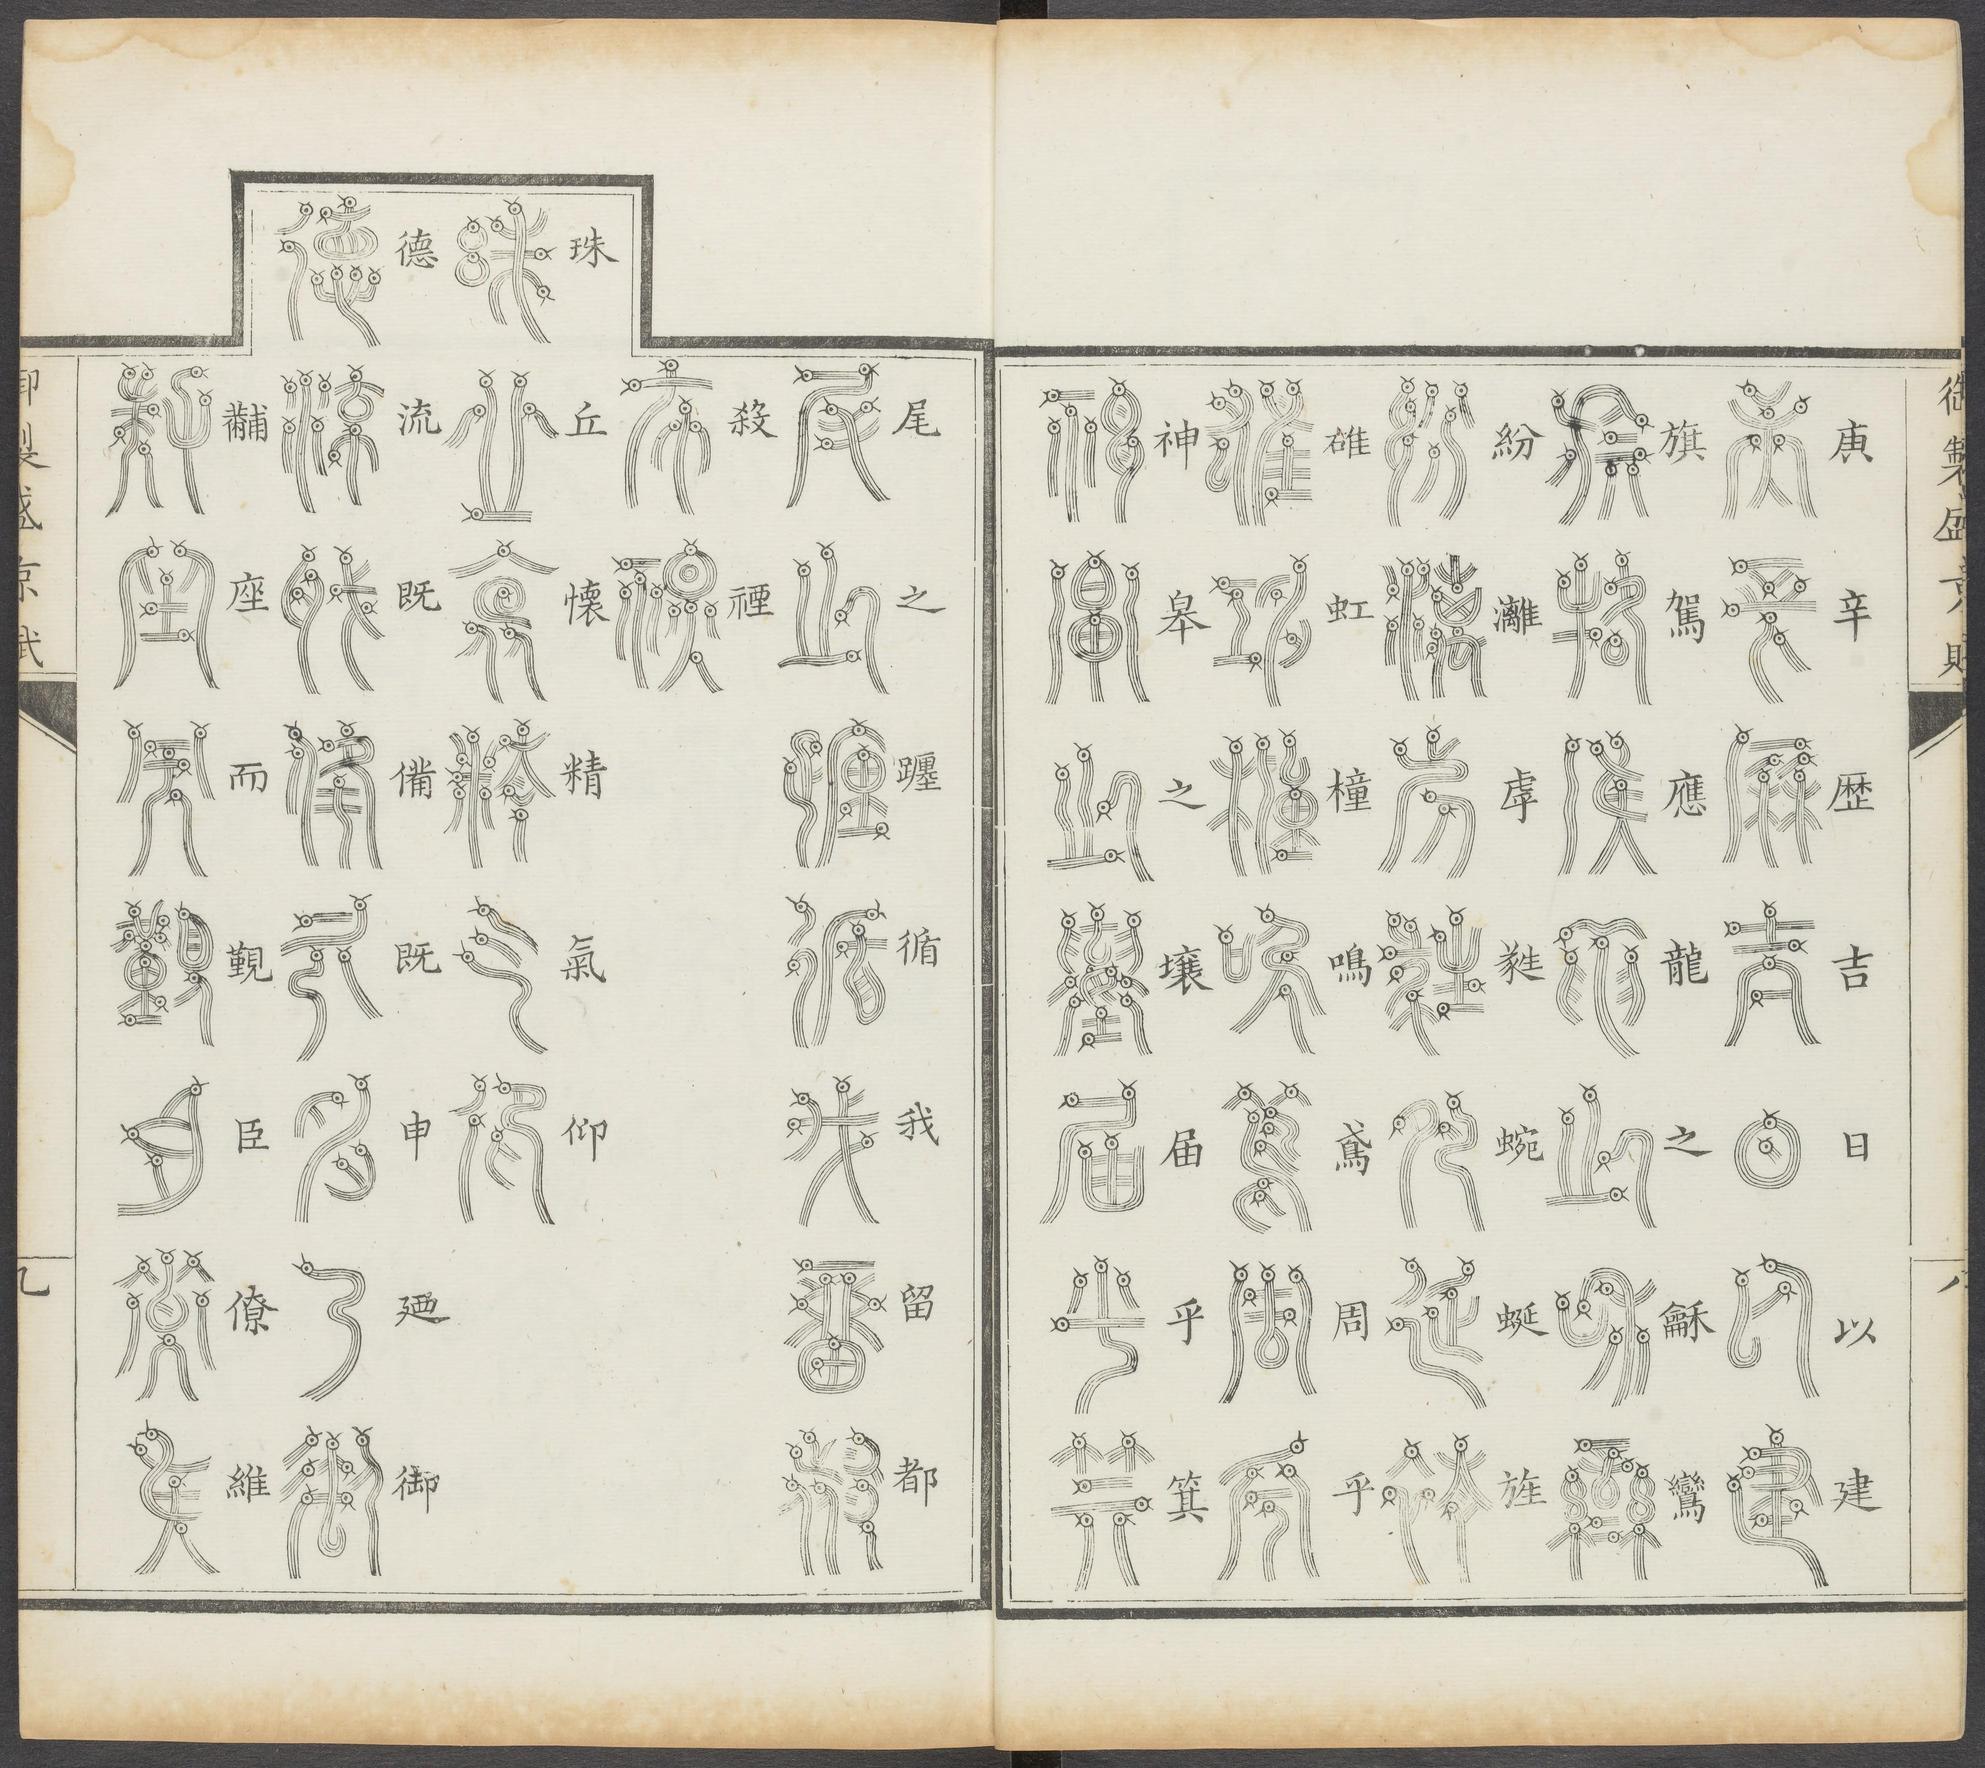 御製盛京賦
八
庚辛歴吉日以建
旗駕應龍之龢鸞
紛灕虖甤蜿蜒旌
碓虹橦鳴鳶周乎
神皋之壤届乎箕
尾之躔循我留都
殺禋
珠丘懷精氣仰
德流既備既申廼御
黼座而覲臣僚維
御製盛京賦
九